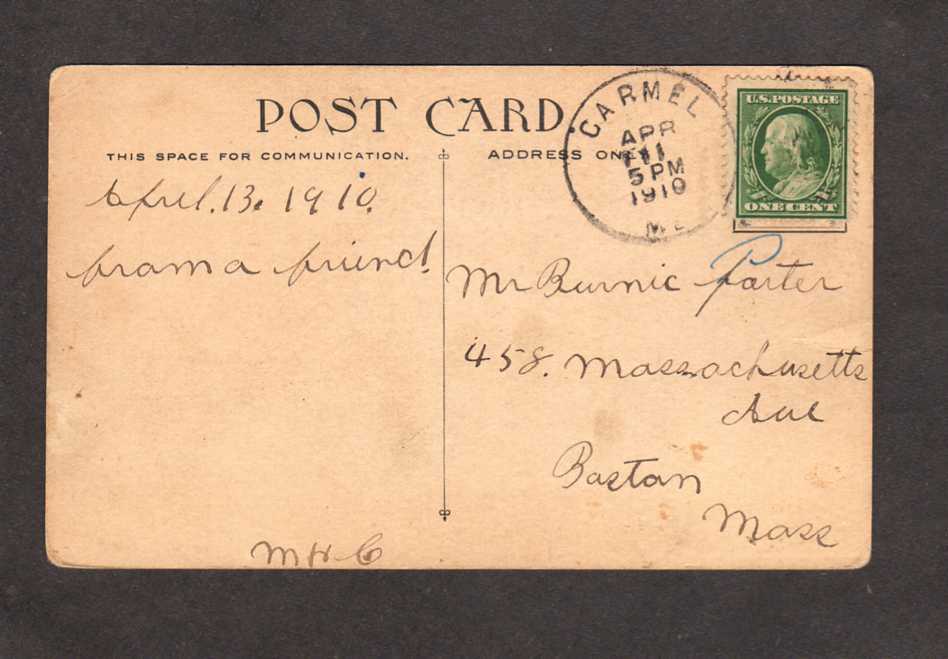 POST CARD.
THIS SPACE FOR COMMUNICATION.
ADDRESS ONLY
CARMEL
APR
11
5 PM
1910
ME
U.S. POSTAGE
ONE CENT
April. 13. 1910.
from a friend.
M H C
Mr Burnic Parter
458. Massachusetts
Ave
Bostan
Mass